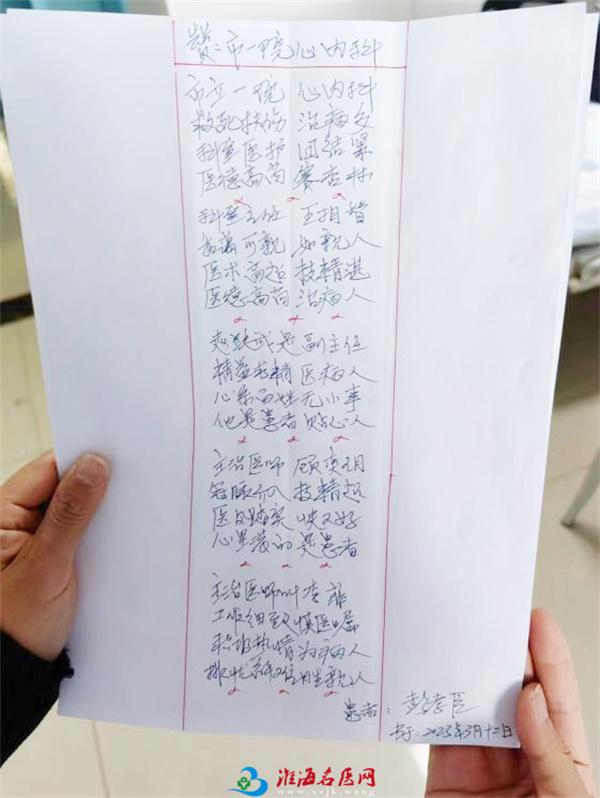 赞：市一院心内科
市立一院 心内科
救死扶伤 治病多
科室医护 团结紧
医德高尚 赛杏林
科室主任 王相智
和蔼可亲 如亲人
医术高超 技精湛
医德高尚 治病人
赵 武是副主任
精益求精医病人
心系百姓无小事
他是患者贴心人
主治医师 顾
冠脉介入 技精超
医 快又好
心里装的是患者
主治医师叫李菲
工作细致 慎医嘱
热情 为病人
排忧 亲人
患者：彭 臣
书于：2025年3月十二日
淮海名医网
www.xzjk.wang